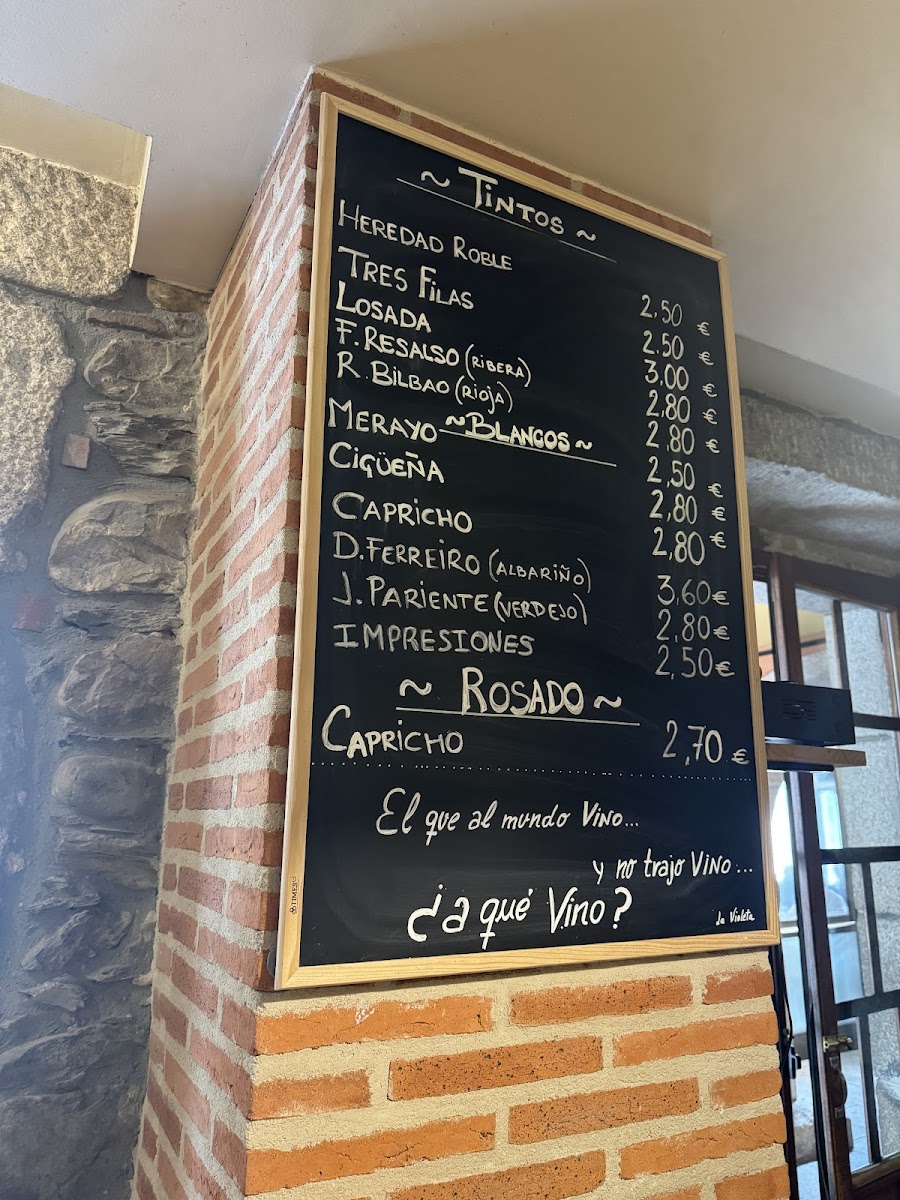 ~ TINTOS ~
HEREDAD ROBLE 2,50 €
TRES FILAS 2.50 €
LOSADA 3,00 €
F. RESALSO (RIBERA) 2,80 €
R. BILBAO (RIOJA) 2,80 €
~BLANCOS~
MERAYO 2,50 €
CIGÜEÑA 2,80 €
CAPRICHO 2,80 €
D. FERREIRO (ALBARIÑO) 3,60 €
J. PARIENTE (VERDEJO) 2,80 €
IMPRESIONES 2,50 €
~ ROSADO ~
CAPRICHO 2,70 €
El que al mundo VINO...
y no trajo VINO...
¿a qué Vino?
La Violeta
TIMES